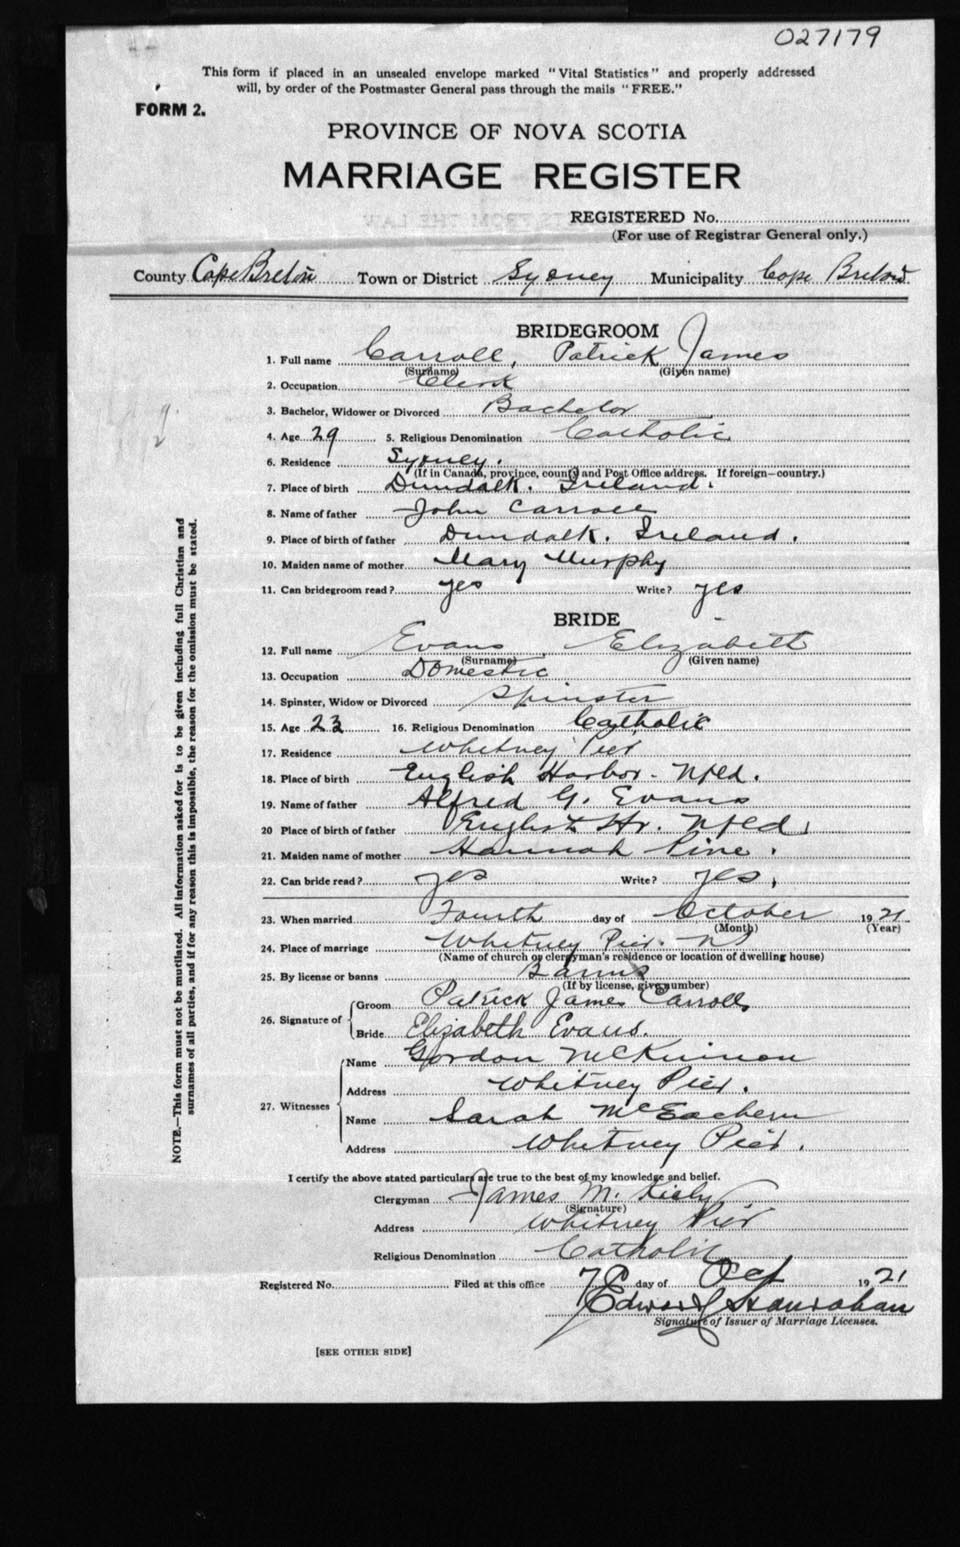 027179
This form if placed in an unsealed envelope marked "Vital Statistics" and properly addressed
will, by order of the Postmaster General pass through the mails "FREE."
FORM 2.
PROVINCE OF NOVA SCOTIA
MARRIAGE REGISTER
REGISTERED No.
(For use of Registrar General only.)
County Cape Breton Town or District Sydney Municipality Cape Breton
BRIDEGROOM
1. Full name Carroll, Patrick James
(Surname) (Given name)
2. Occupation Clerk
3. Bachelor, Widower or Divorced Bachelor
4. Age 29 5. Religious Denomination Catholic
6. Residence Sydney.
(If in Canada, province, county and Post Office address. If foreign—country.)
7. Place of birth Dundalk. Ireland.
8. Name of father John Carroll
9. Place of birth of father Dundalk. Ireland.
10. Maiden name of mother Mary Murphy
11. Can bridegroom read? yes Write? yes
BRIDE
12. Full name Evans Elizabeth
(Surname) (Given name)
13. Occupation Domestic
14. Spinster, Widow or Divorced Spinster
15. Age 23 16. Religious Denomination Catholic
17. Residence Whitney Pier
18. Place of birth English Harbor - Nfld.
19. Name of father Alfred G. Evans
20 Place of birth of father English Hr. Nfld.
21. Maiden name of mother Hannah Pine.
22. Can bride read? yes Write? yes.
23. When married Fourth day of October 1921
(Month) (Year)
24. Place of marriage Whitney Pier. NS
(Name of church or clergyman's residence or location of dwelling house)
25. By license or banns Banns
(If by license, give number)
26. Signature of Groom Patrick James Carroll
Bride Elizabeth Evans.
27. Witnesses Name Gordon McKinnon
Address Whitney Pier.
Name Sarah McEachern
Address Whitney Pier.
I certify the above stated particulars are true to the best of my knowledge and belief.
Clergyman James M. Kiely
(Signature)
Address Whitney Pier
Religious Denomination Catholic
Registered No. Filed at this office 7 day of Oct 1921
Edward Hanrahan
Signature of Issuer of Marriage Licenses.
[SEE OTHER SIDE]
NOTE.—This form must not be mutilated. All information asked for is to be given including full Christian and
surnames of all parties, and if for any reason this is impossible, the reason for the omission must be stated.